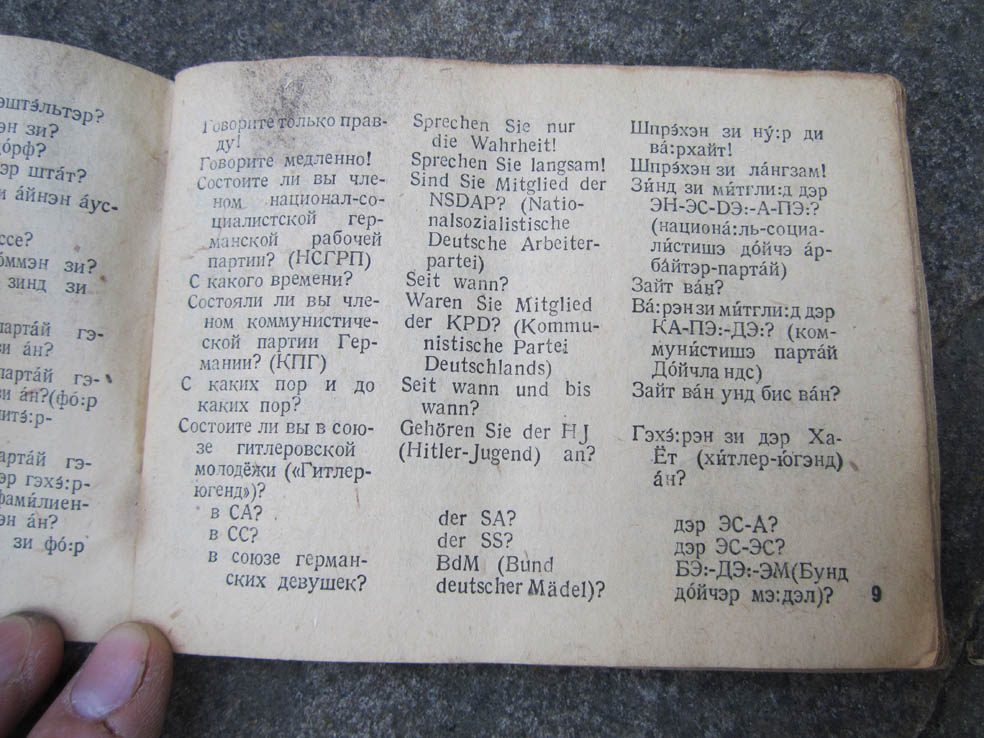 эштэ́льтэр?
эн зи?
до́рф?
эр шта́т?
и а́йнэн а́ус-
ссе?
о́ммэн зи?
зинд зи
парта́й гэ-
зи а́н?
парта́й гэ-
зи а́н?(фо́:р
итэ́:р-
арта́й гэ-
эр гэхэ́:р-
фами́лиен-
эн а́н?
зи фо́:р
Говорите только прав-
ду!
Говорите медленно!
Состоите ли вы чле-
ном национал-со-
циалистской гер-
манской рабочей
партии? (НСГРП)
С какого времени?
Состояли ли вы чле-
ном коммунистиче-
ской партии Гер-
мании? (КПГ)
С каких пор и до
каких пор?
Состоите ли вы в сою-
зе гитлеровской
молодёжи («Гитлер-
югенд»)?
в СА?
в СС?
в союзе герман-
ских девушек?
Sprechen Sie nur
die Wahrheit!
Sprechen Sie langsam!
Sind Sie Mitglied der
NSDAP? (Natio-
nalsozialistische
Deutsche Arbeiter-
partei)
Seit wann?
Waren Sie Mitglied
der KPD? (Kommu-
nistische Partei
Deutschlands)
Seit wann und bis
wann?
Gehören Sie der HJ
(Hitler-Jugend) an?
der SA?
der SS?
BdM (Bund
deutscher Mädel)?
Шпрэ́хэн зи ну́:р ди
ва́:рхайт!
Шпрэ́хэн зи ла́нгзам!
Зи́нд зи ми́тгли:д дэр
ЭН-ЭС-DЭ:-А-ПЭ:?
(национа́:ль-социа-
ли́стишэ до́йчэ а́р-
ба́йтэр-парта́й)
Зайт ва́н?
Ва́:рэн зи ми́тгли:д дэр
КА-ПЭ:-ДЭ:? (ком-
муни́стишэ парта́й
До́йчла ндс)
Зайт ва́н унд бис ва́н?
Гэхэ́:рэн зи дэр Ха-
Ёт (хи́тлер-ю́гэнд)
а́н?
дэр ЭС-А?
дэр ЭС-ЭС?
БЭ:-ДЭ:-ЭМ(Бунд
до́йчэр мэ:дэл)?
9